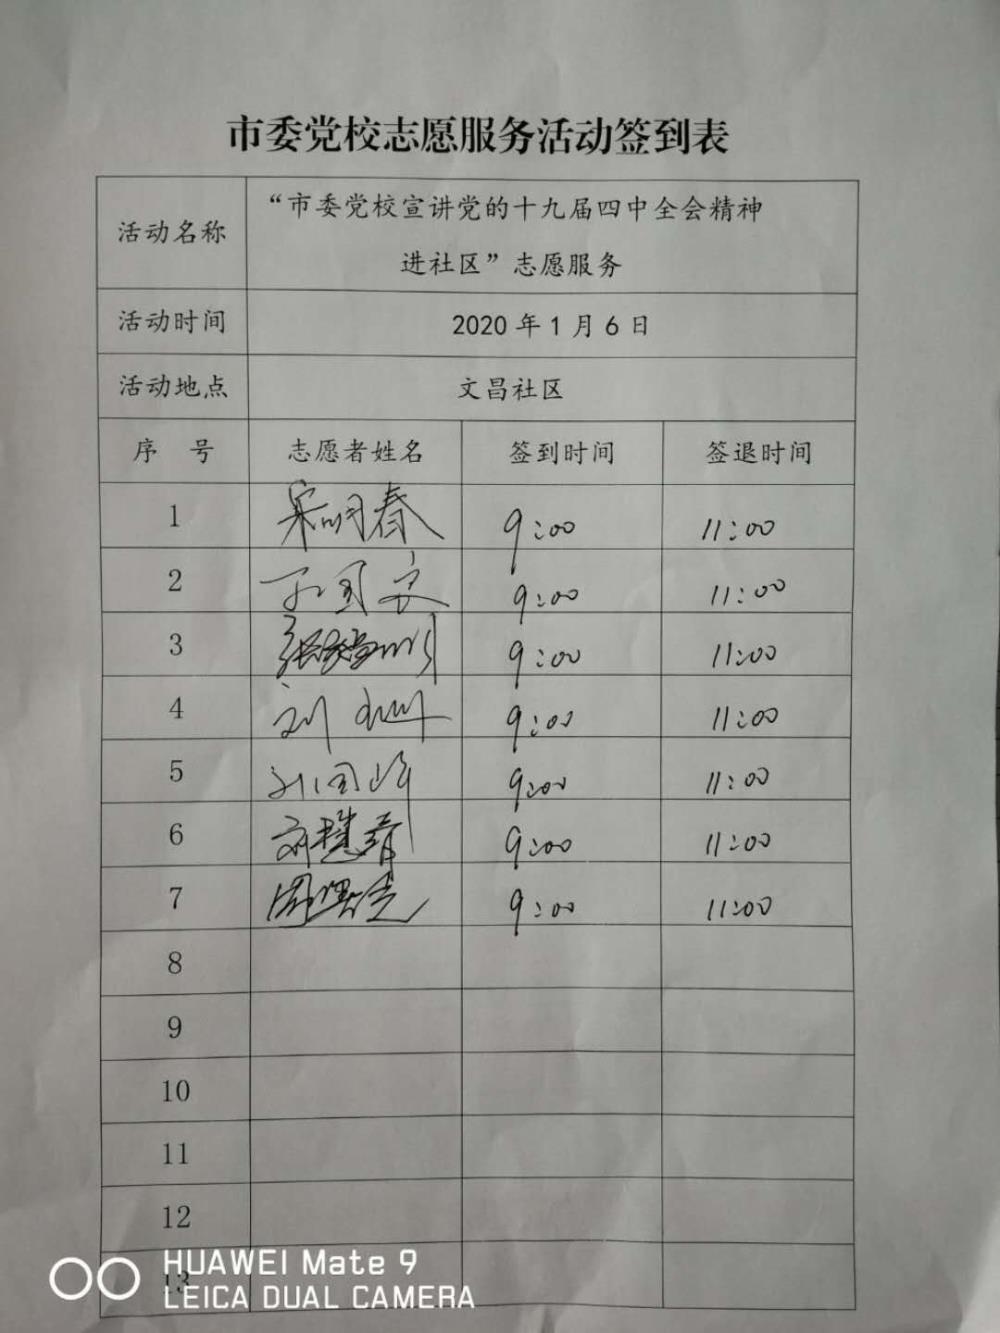 市委党校志愿服务活动签到表
活动名称 “市委党校宣讲党的十九届四中全会精神
进社区”志愿服务
活动时间 2020年1月6日
活动地点 文昌社区
序 号 志愿者姓名 签到时间 签退时间
1 宋明春 9:00 11:00
2 9:00 11:00
3 9:00 11:00
4 刘 9:00 11:00
5 9:00 11:00
6 9:00 11:00
7 9:00 11:00
8
9
10
11
12
13
HUAWEI Mate 9
LEICA DUAL CAMERA